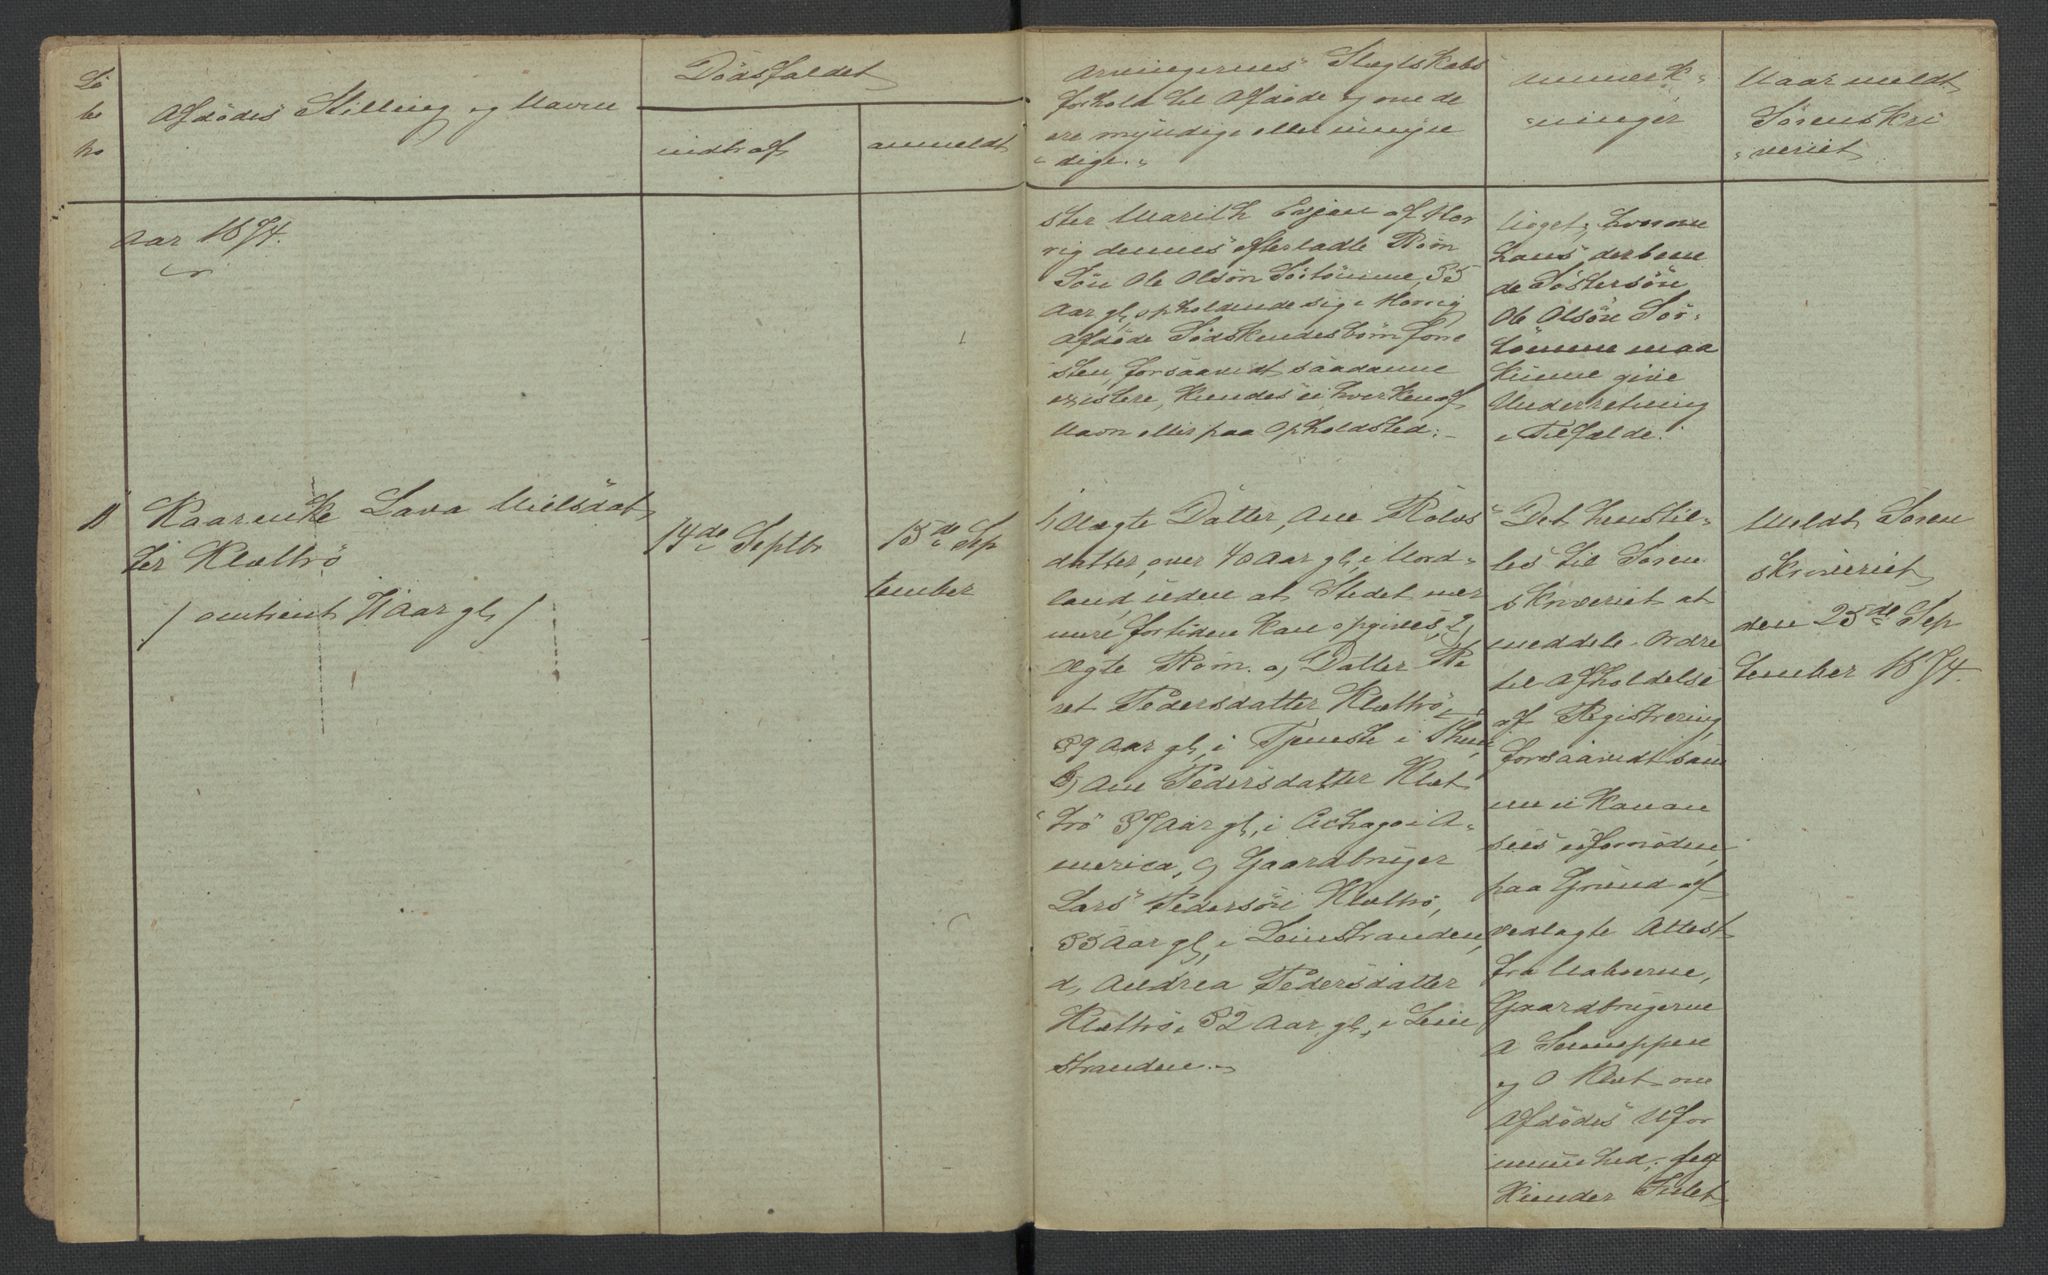 Lö
be
no
Afdödes Stilling og Navn
Dödsfaldet
indtraf
anmeldt
Arvingernes Slægtskabs
forhold til Afdöde og om de
ere myndige eller umyn
dige.
Anmærk-
ninger
Naar meldt
Sorenskri
veriet
Aar 1874.
ster Marith Evjen af Hor
rig dennes efterladte Barn
Sön Ole Olsön Sörtömme, 35
Aar gl, opholdende sig i Horrig
Afdöde Södskendebörn forre
sten, forsaavidt saadanne
existere, kiendes ei hverken af
Navn eller paa Opholdsted.
lioget, hvorom
hans derboen
de Söstersön
Ole Olsön Sör-
tömme maa
kunne give
Underretning
i Tilfælde.
11
Kaarenke Lava Nielsdat
ter Klættrö
/ omtrent 71 Aar gl /
14de Septbr
15de Sep
tember
1, Uægte Datter, Ane Rolos
datter, over 40 Aar gl, i Nord-
land uden at Stedet nær
mere for tiden kan opgives, 2,
Ægte Börn. a, Datter Be
ret Pedersdatter Klættrö,
39 Aar gl, i Tjeneste i Thrm,
b, Ane Pedersdatter Klæt
trö 37 Aar gl, i Chicago i A-
merica, c, Gaardbruger
Lars Pedersön Klættrö,
35 Aar gl, i Leinstranden,
d, Andrea Pedersdatter
Klættrö, 32 Aar gl, i Lein
stranden.
Det henstil-
les til Soren
skriveriet at
meddele Ordre
til Afholdelse
af Registrering,
forsaavidt sam
me ei kan an
sees ufornöden,
paa Grund af
vedlagte Attest
fra Naboerne,
Gaardbrugerne
A Sennppen
og O Klæt om
Afdödes Ufor
muenhed. Jeg
kiender Intet
Meldt Soren
skriveriet
den 25de Sep
tember 1874.